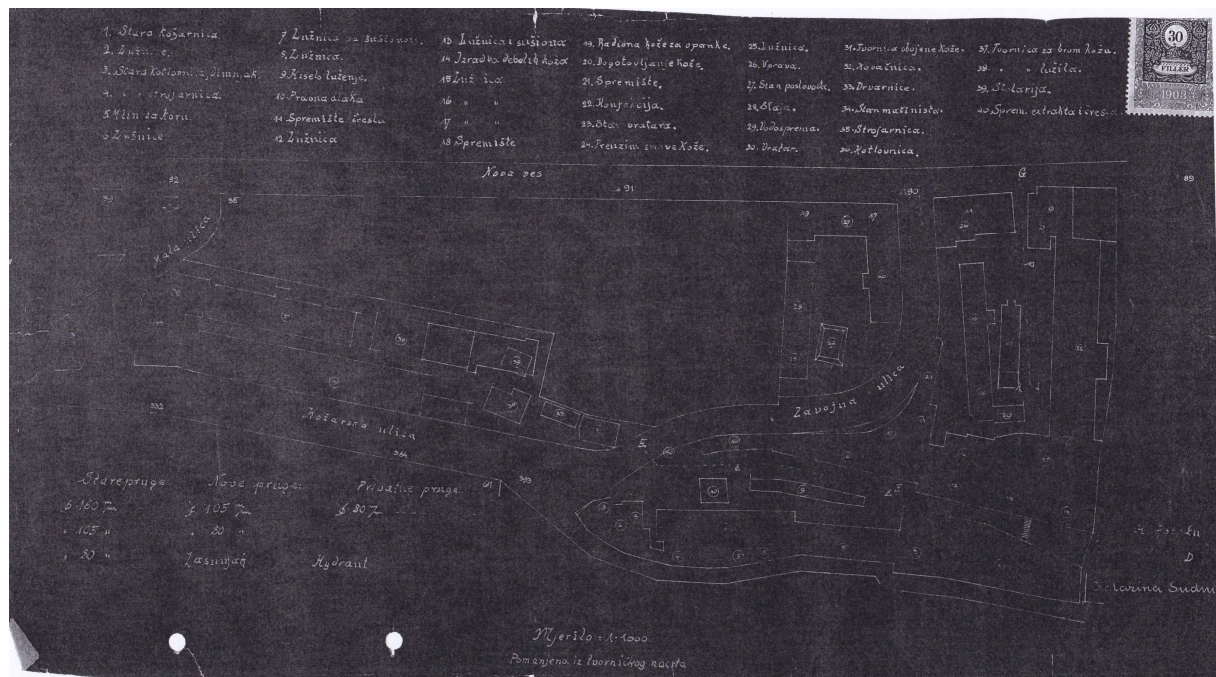 1. Stara kožarnica
2. Lužnice.
3. Stara kotlovnica, dimnjak
4. " strojarnica.
5. Mlin za koru.
6. Lužnice
7. Lužnica sa sušionom.
8. Lužnica.
9. Kiselo luženje.
10. Praona dlaka
11. Spremište tresla
12. Lužnica
13. Lužnica i sušiona
14. Izradba debelih koža
15. Lužnica
16 " "
17 " "
18. Spremište
19. Radiona kože za opanke.
20. Dogotovljanje kože.
21. Spremište.
22. Konfekcija.
23. Stan vratara.
24. Prenzim sirove kože.
25. Lužnica.
26. Uprava.
27. Stan poslovođe.
28. Staja.
29. Vodosprema.
30. Vratar.
31. Tvornica obojene kože.
32. Kovačnica.
33. Drvarnice.
34. Stan mašinista.
35. Strojarnica.
36. Kotlovnica.
37. Tvornica za brom kožu.
38. " " lužila.
39. Stolarija.
40. Sprem. extrakta i
30
FILLÉR
1903
Nova ves
G
92
91
90
89
35
Mala ulica
19
17
Zavojna ulica
Kožarska ulica
332
364
393
Stare pruge
Nove pruge:
Privatne pruge
160
105
80
105 "
80 "
80 "
Zasunjač
Hydrant
D
Mjerilo = 1:1000
Pomanjeno iz tvorničkog nacrta